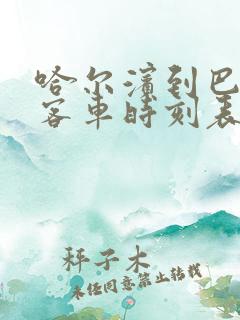 哈尔滨到巴
客车时刻表
秤子木
未经同意禁止转载